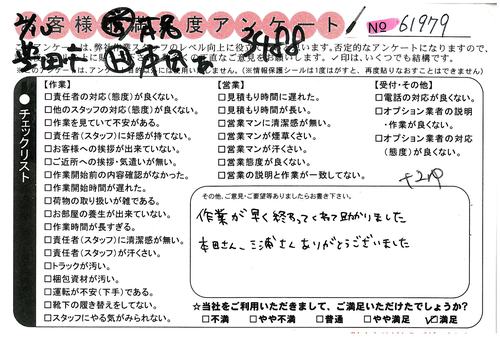 お客様満足度アンケート
No 61979
3488
本アンケートは、弊社作業スタッフのレベル向上に役立
います。否定的なアンケートになりますので、
直なご意見をお願いします。✓印は、いくつでも結構です。
※このアンケートは、アンケート目的以外には使用しません。(※情報保護シールは1度はがすと、再度貼りなおすことはできません。)
チェックリスト
【作業】
□責任者の対応(態度)が良くない。
□他のスタッフの対応(態度)が良くない。
□作業を見ていて不安がある。
□責任者(スタッフ)に好感が持てない。
□お客様への挨拶が出来ていない。
□ご近所への挨拶・気遣いが無い。
□作業開始前の内容確認がなかった。
□作業開始時間が遅れた。
□荷物の取り扱いが雑である。
□お部屋の養生が出来ていない。
□作業時間が長すぎる。
□責任者(スタッフ)に清潔感が無い。
□責任者(スタッフ)が汗くさい。
□トラックが汚い。
□梱包資材が汚い。
□運転が不安(下手)である。
□靴下の履き替えをしてない。
□スタッフにやる気がみられない。
【営業】
□見積もり時間に遅れた。
□見積もり時間が長い。
□営業マンに清潔感が無い。
□営業マンが煙草くさい。
□営業マンが汗くさい。
□営業態度が良くない。
□営業の説明と作業が一致してない。
【受付・その他】
□電話の対応が良くない。
□オプション業者の説明
・作業が良くない。
□オプション業者の対応
(態度)が良くない。
その他、ご意見・ご要望等ありましたらお書き下さい。
作業が早く終わってくれて助かりました
本田さん、三浦さんありがとうございました
☆当社をご利用いただきまして、ご満足いただけたでしょうか?
□不満 □やや不満 □普通 □やや満足 ☑満足